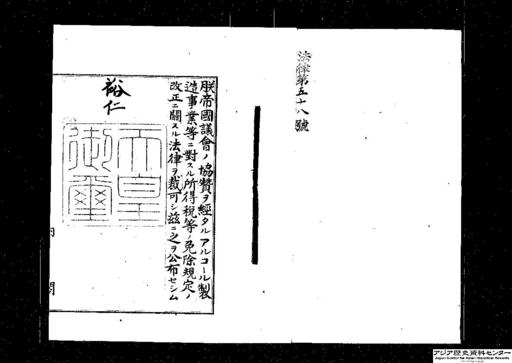 法律第五十八號
朕帝國議會ノ協賛ヲ經タルアルコール製
造事業等ニ對スル所得稅等ノ免除規定ノ
改正ニ關スル法律ヲ裁可シ茲ニ之ヲ公布セシム
裕仁
天皇
御璽
内閣
アジア歴史資料センター
Japan Center for Asian Historical Records